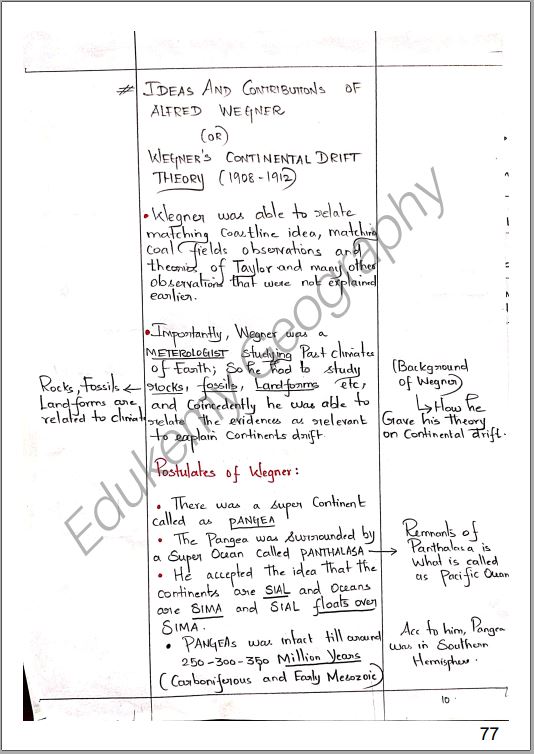 # IDEAS AND CONTRIBUTIONS OF
ALFRED WEGNER
(OR)
WEGNER'S CONTINENTAL DRIFT
THEORY (1908-1912)
• Wegner was able to relate
matching Coastline idea, matching
coal fields observations and
theories of Taylor and many other
observations that were not explained
earlier.
• Importantly, Wegner was a
METEROLOGIST studying Past climates
of Earth; So he had to study
rocks, fossils, Landforms etc,
and Coincedently he was able to
relate the evidences as relevant
to explain Continents drift.
Rocks, Fossils ←
Landforms are
related to climate
(Background
of Wegner)
↳ How he
Gave his Theory
on Continental drift.
Postulates of Wegner:
• There was a super Continent
called as PANGEA
• The Pangea was surrounded by
a Super Ocean called PANTHALASA →
Remnants of
Panthalasa is
what is called
as Pacific Ocean
• He accepted the idea that the
continents are SIAL and Oceans
are SIMA and SIAL floats over
SIMA.
• PANGEAs was intact till around
250-300-350 Million Years
(Carboniferous and Early Mesozoic)
Acc to him, Pangea
was in Southern
Hemisphere.
10
Edukemy Geography
77